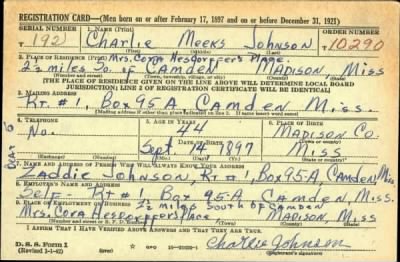 REGISTRATION CARD—(Men born on or after February 17, 1897 and on or before December 31, 1921)
SERIAL NUMBER 1. NAME (Print) ORDER NUMBER
192 Charlie Meeks Johnson 10290
2. PLACE OF RESIDENCE (Print) Mrs. Cora Hesdorffers Place.
2½ miles So. of Camden Madison Miss
(Number and street) (Town, township, village, or city) (County) (State)
[THE PLACE OF RESIDENCE GIVEN ON THE LINE ABOVE WILL DETERMINE LOCAL BOARD
JURISDICTION; LINE 2 OF REGISTRATION CERTIFICATE WILL BE IDENTICAL]
3. MAILING ADDRESS
Rt. #1, Box 95-A, Camden Miss.
[Mailing address if other than place indicated on line 2. If same insert word same]
4. TELEPHONE 5. AGE IN YEARS 6. PLACE OF BIRTH
No. 44 Madison Co.
DATE OF BIRTH (Town or county)
Sept 14 1897 Miss
(Mo.) (Day) (Yr.) (State or country)
7. NAME AND ADDRESS OF PERSON WHO WILL ALWAYS KNOW YOUR ADDRESS
Zaddie Johnson, Rt #1, Box 95-A, Camden, Miss
8. EMPLOYER'S NAME AND ADDRESS
Self - Rt #1 Box 95-A, Camden, Miss.
9. PLACE OF EMPLOYMENT OR BUSINESS 2½ miles South of Camden
Mrs. Cora Hesdorffers Place Madison, Miss
(Number and street or R. F. D. number) (Town) (County) (State)
I AFFIRM THAT I HAVE VERIFIED ABOVE ANSWERS AND THAT THEY ARE TRUE.
D. S. S. Form 1
(Revised 1-1-42) (over) GPO Charlie Johnson